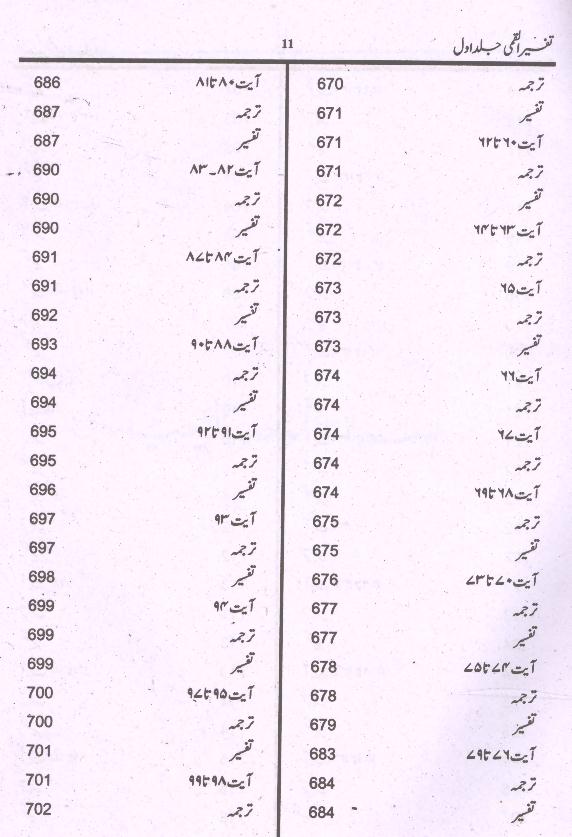 تفسیر القمی جلد اول 11
ترجمہ 670
تفسیر 671
آیت ۶۰ تا ۶۲ 671
ترجمہ 671
تفسیر 672
آیت ۶۳ تا ۶۴ 672
ترجمہ 672
آیت ۶۵ 673
ترجمہ 673
تفسیر 673
آیت ۶۶ 674
ترجمہ 674
آیت ۶۷ 674
ترجمہ 674
آیت ۶۸ تا ۶۹ 674
ترجمہ 675
تفسیر 675
آیت ۷۰ تا ۷۳ 676
ترجمہ 677
تفسیر 677
آیت ۷۴ تا ۷۵ 678
ترجمہ 678
تفسیر 679
آیت ۷۶ تا ۷۹ 683
ترجمہ 684
تفسیر 684
آیت ۸۰ تا ۸۱ 686
ترجمہ 687
تفسیر 687
آیت ۸۲۔۸۳ 690
ترجمہ 690
تفسیر 690
آیت ۸۴ تا ۸۷ 691
ترجمہ 691
تفسیر 692
آیت ۸۸ تا ۹۰ 693
ترجمہ 694
تفسیر 694
آیت ۹۱ تا ۹۲ 695
ترجمہ 695
تفسیر 696
آیت ۹۳ 697
ترجمہ 697
تفسیر 698
آیت ۹۴ 699
ترجمہ 699
تفسیر 699
آیت ۹۵ تا ۹۷ 700
ترجمہ 700
تفسیر 701
آیت ۹۸ تا ۹۹ 701
ترجمہ 702